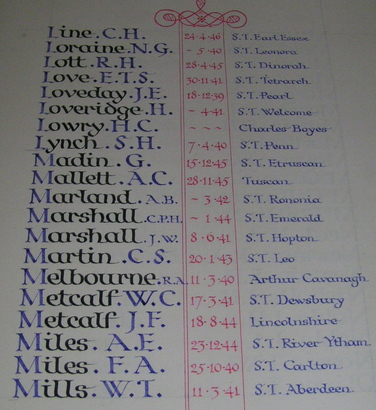 Line.C.H. 24·4·46 S.T. Earl Essex
Loraine.N.G. ~ 5·40 S.T. Leonora
Lott.R.H. 28·4·45 S.T. Dinorah
Love.E.T.S. 30·11·41 S.T. Tetrarch
Loveday.J.E. 18·12·39 S.T. Pearl
Loveridge.H. ~ 4·41 S.T. Welcome
Lowry.H.C. ~ ~ ~ Charles Bayes
Lynch.S.H. 7·4·40 S.T. Penn
Madin.G. 15·12·45 S.T. Etruscan
Mallett.A.C. 28·11·45 Tuscan
Marland.A.B. ~ 3·42 S.T. Rononia
Marshall.C.P.H. ~ 1·44 S.T. Emerald
Marshall.J.W. 8·6·41 S.T. Hopton
Martin.C.S. 20·1·43 S.T. Leo
Melbourne.R.A. 11·3·40 Arthur Cavanagh
Metcalf.W.C. 17·3·41 S.T. Dewsbury
Metcalf.J.F. 18·8·44 Lincolnshire
Miles.A.E. 23·12·44 S.T. River Ytham
Miles.F.A. 25·10·40 S.T. Carlton
Mills.W.T. 11·3·41 S.T. Aberdeen